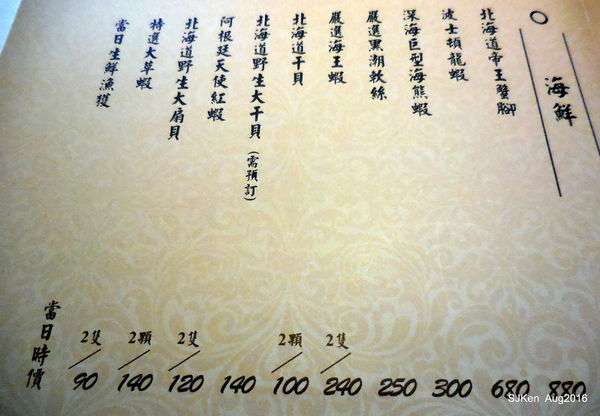 海鮮
北海道帝王蟹腳 880
波士頓龍蝦 680
深海巨型海熊蝦 300
嚴選黑潮軟絲 250
嚴選海王蝦 2隻/240
北海道干貝 2顆/100
北海道野生大干貝(需預訂) 140
阿根廷天使紅蝦 2隻/120
北海道野生大扇貝 2顆/140
特選大草蝦 2隻/90
當日生鮮漁獲 當日時價
SuKen Aug2016